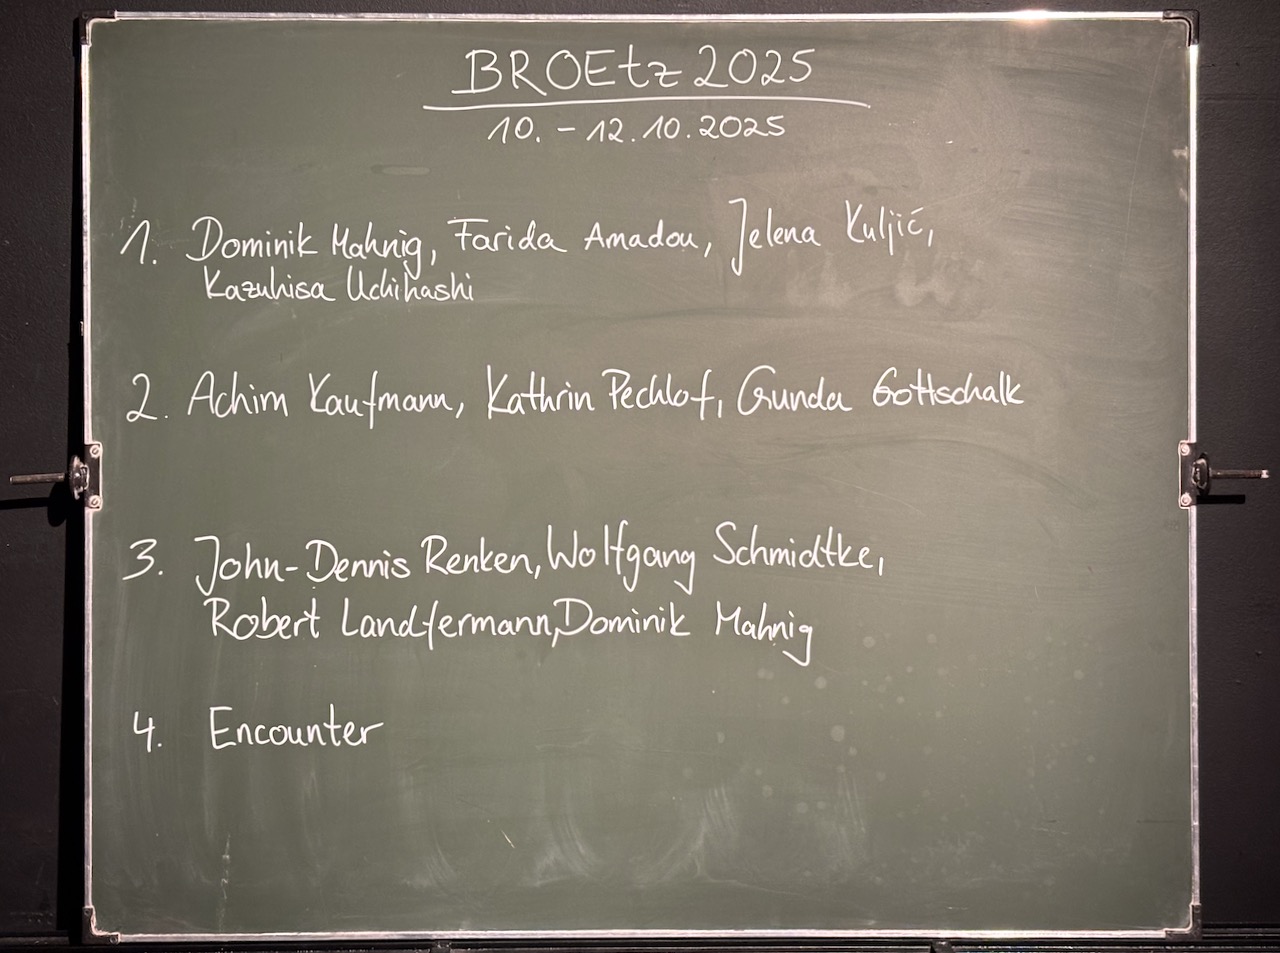 BROEtz 2025
10. - 12.10.2025
1. Dominik Mahnig, Farida Amadou, Jelena Kuljić,
Kazuhisa Uchihashi
2. Achim Kaufmann, Kathrin Pechlof, Gunda Gottschalk
3. John-Dennis Renken, Wolfgang Schmidtke,
Robert Landfermann, Dominik Mahnig
4. Encounter